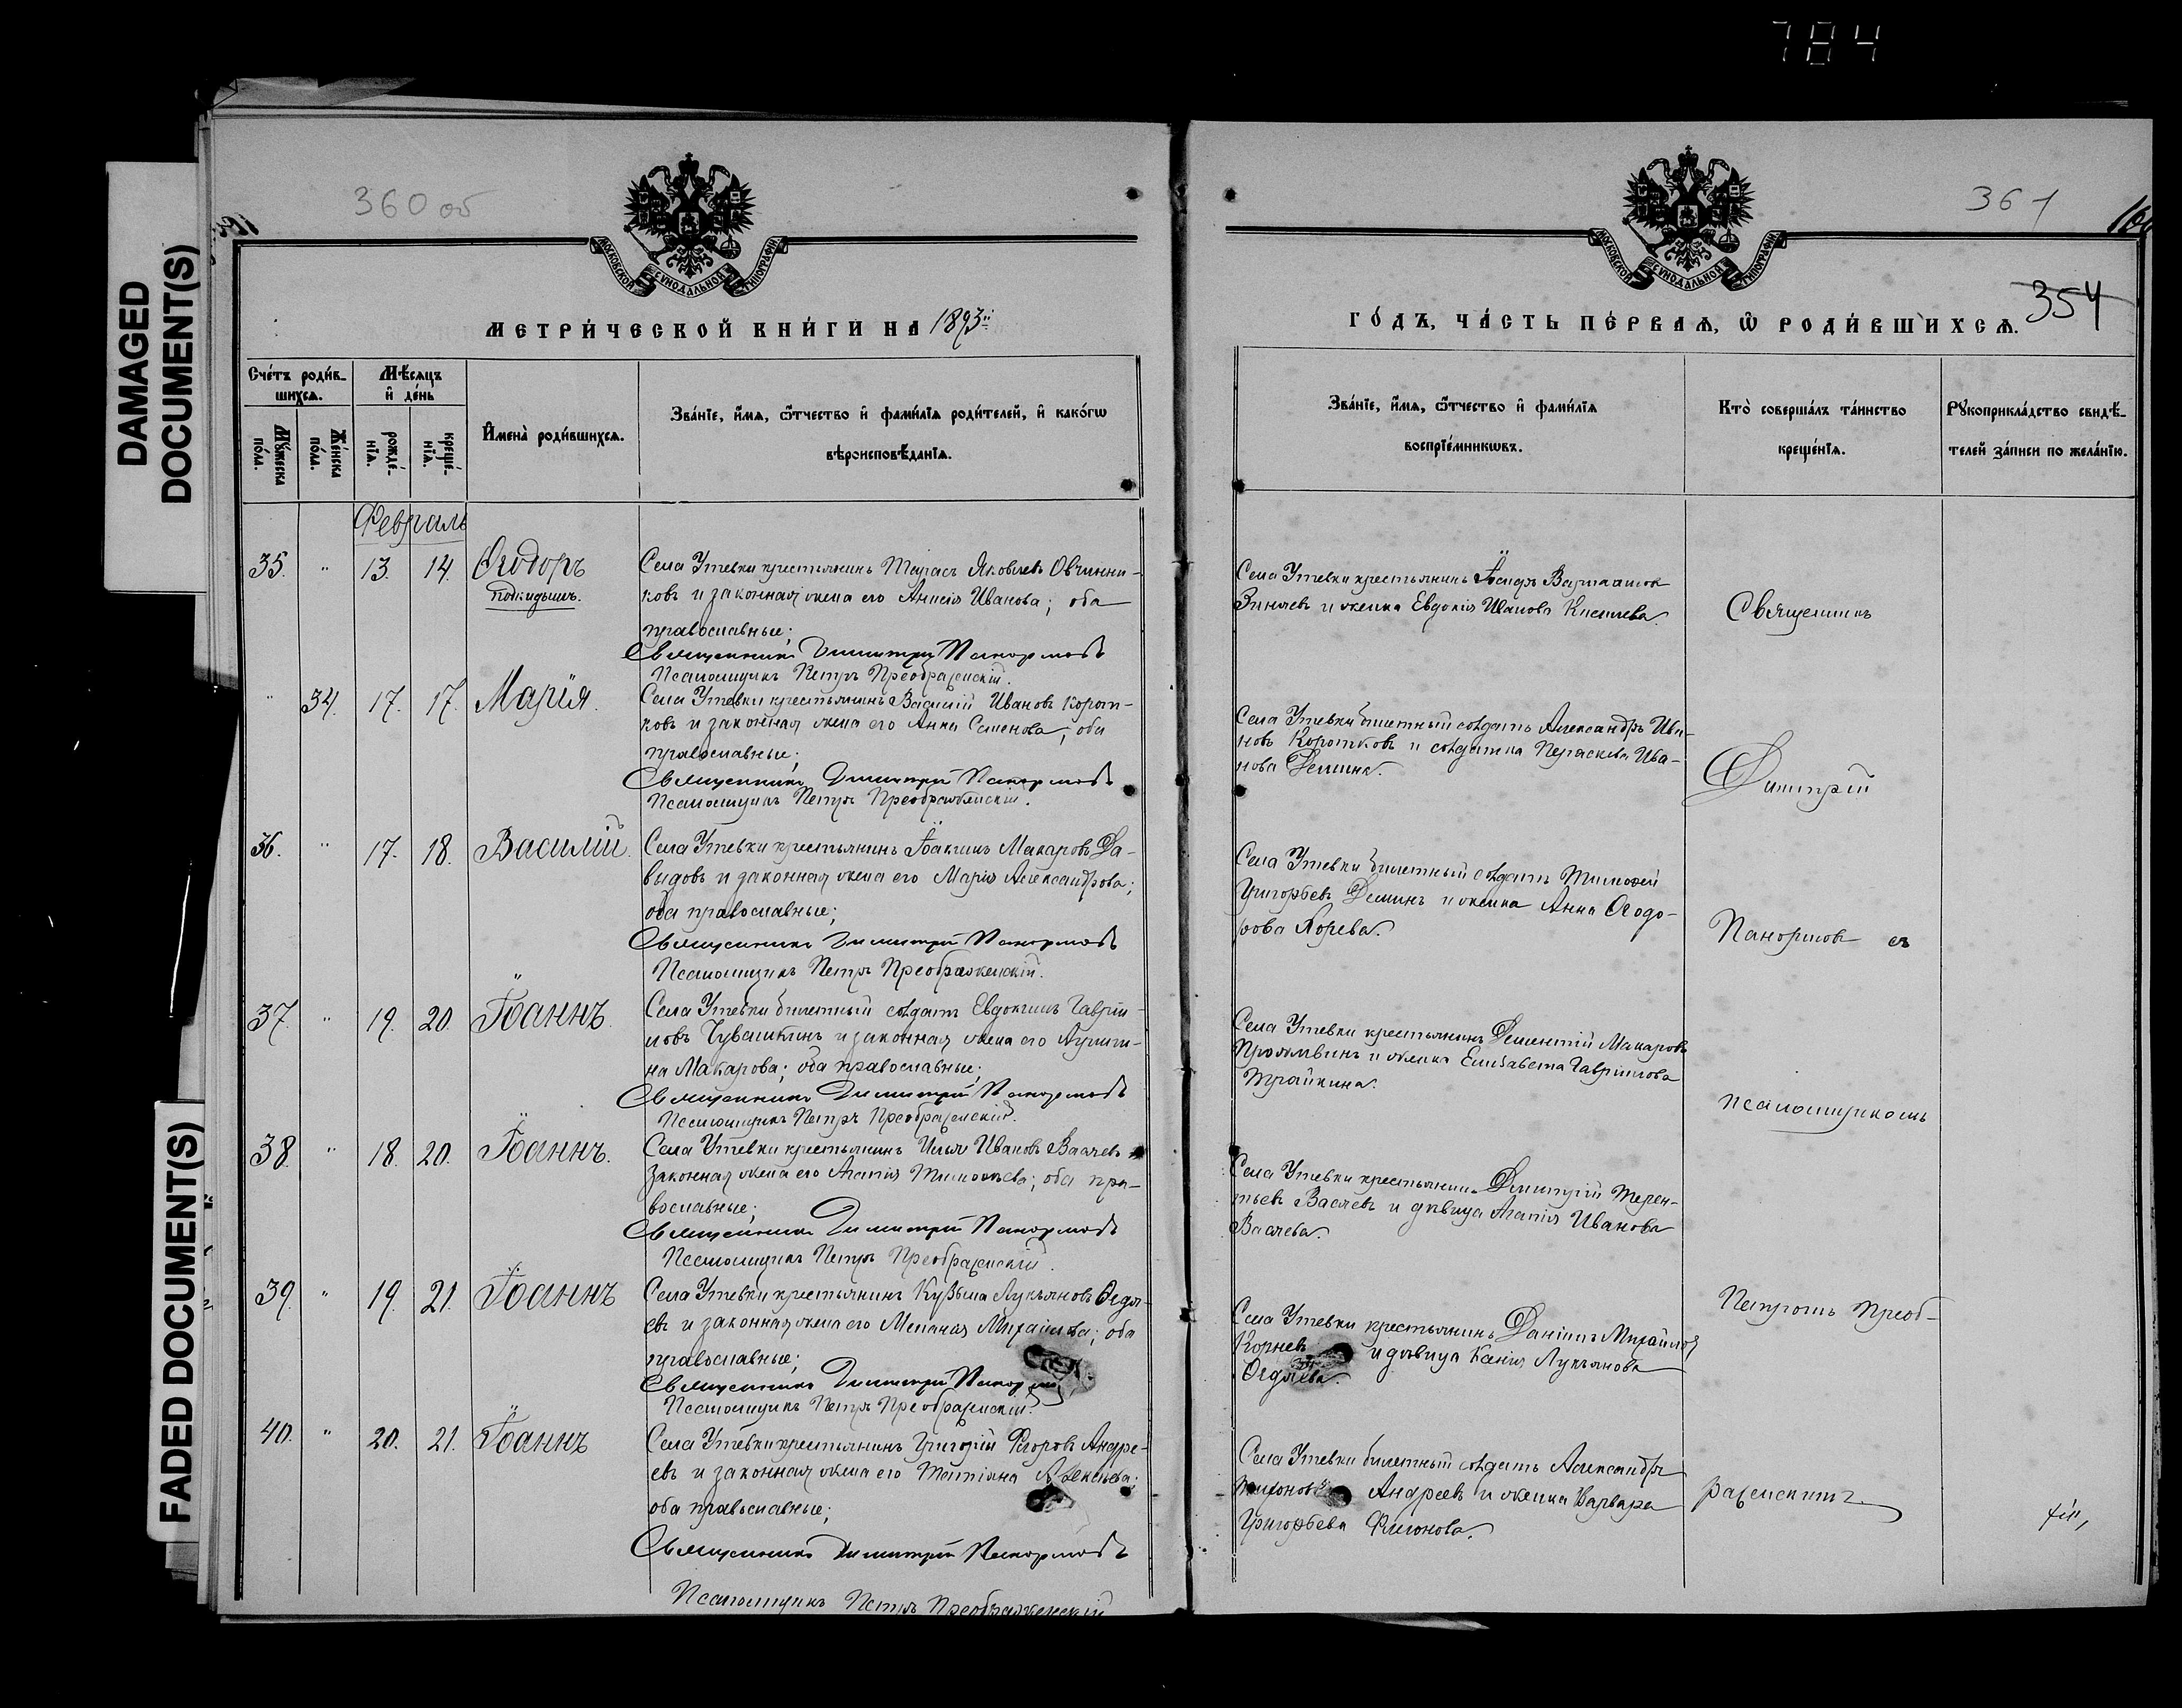 784
DAMAGED
DOCUMENT(S)
FADED DOCUMENT(S)
360 об
МОСКОВСКОЙ СѴНОДАЛЬНОЙ ТИПОГРАФІИ
МЕТРИ́ЧЕСКОЙ КНИ́ГИ НА 1893й
Сче́тъ роди́в-
шихсѧ.
Мѣ́сѧцъ
и҆ де́нь
Мꙋ́жеска
по́ла.
Же́нска
по́ла.
рожде́-
нїѧ.
креще́-
нїѧ.
И҆мена̀ роди́вшихсѧ.
Зва́нїе, и҆́мѧ, ѻ҆́тчество и҆ фами́лїѧ роди́телей, и҆ како́гѡ
вѣроисповѣ́данїѧ.
Февраль
35. " 13. 14. Ѳеодоръ
подкидышъ.
Села Утевки крестьянинъ Тарасъ Яковлевъ Овчинни-
ковъ и законная жена его Анисія Иванова; оба
православные;
Священникъ Димитрій Панормовъ
Псаломщикъ Петръ Преображенскій.
" 34. 17. 17. Марія.
Села Утевки крестьянинъ Василій Ивановъ Корот-
ковъ и законная жена его Анна Семенова; оба
православные;
Священникъ Димитрій Панормовъ
Псаломщикъ Петръ Преображенскій.
36. " 17. 18. Василій.
Села Утевки крестьянинъ Іоакимъ Макаровъ Да-
выдовъ и законная жена его Марія Александрова;
оба православные;
Священникъ Димитрій Панормовъ
Псаломщикъ Петръ Преображенскій.
37. " 19. 20. Іоаннъ.
Села Утевки билетный солдатъ Евдокимъ Гаврі-
ловъ Чувашкинъ и законная жена его
на Макарова; оба православные;
Священникъ Димитрій Панормовъ
Псаломщикъ Петръ Преображенскій.
38. " 18. 20. Іоаннъ.
Села Утевки крестьянинъ Илья Ивановъ Васяевъ и
законная жена его Агапія Тимоѳеева; оба пра-
вославные;
Священникъ Димитрій Панормовъ
Псаломщикъ Петръ Преображенскій.
39. " 19. 21. Іоаннъ
Села Утевки крестьянинъ Кузьма Лукьяновъ Ѳедя-
евъ и законная жена его Меланія Михайлова; оба
православные;
Священникъ Димитрій
Псаломщикъ Петръ Преображенскій.
40. " 20. 21. Іоаннъ
Села Утевки крестьянинъ Григорій Андре-
евъ и законная жена его Татіана Алексѣева;
оба православные;
Священникъ Димитрій Панормовъ
Псаломщикъ Петръ Преображенскій
361
МОСКОВСКОЙ СѴНОДАЛЬНОЙ ТИПОГРАФІИ
354
ГО́ДЪ, ЧА́СТЬ ПЕ́РВАѦ, Ѡ҆ РОДИ́ВШИХСѦ.
Зва́нїе, и҆́мѧ, ѻ҆́тчество и҆ фами́лїѧ
воспрїе́мникѡвъ.
Кто̀ соверша́лъ та́инство
креще́нїѧ.
Рꙋкоприкла́дство свидѣ́-
телей за́писи по жела́нїю.
Села Утевки крестьянинъ
Зиняевъ и женка Евдокія Иванова Киселева.
Села Утевки билетный солдатъ Александръ Ива-
новъ Коротковъ и солдатка Параскева Ива-
нова Демина.
Села Утевки билетный солдатъ Тимоѳей
Григорьевъ Деминъ и женка Анна Ѳеодо-
рова
Села Утевки крестьянинъ Дементій Макаровъ
и женка Елисавета Гаврилова
Трайкина.
Села Утевки крестьянинъ Димитрій Терен-
тьевъ Васяевъ и дѣвица Агапія Иванова
Васяева.
Села Утевки крестьянинъ Даніилъ Михайловъ
Корневъ и дѣвица Ксенія Лукьянова
Ѳедяева.
Села Утевки билетный солдатъ Александръ
Андреевъ и женка Варвара
Григорьева Филонова.
Священникъ
Димитрій
Панормовъ съ
псаломщикомъ
Петромъ Преоб-
раженскимъ